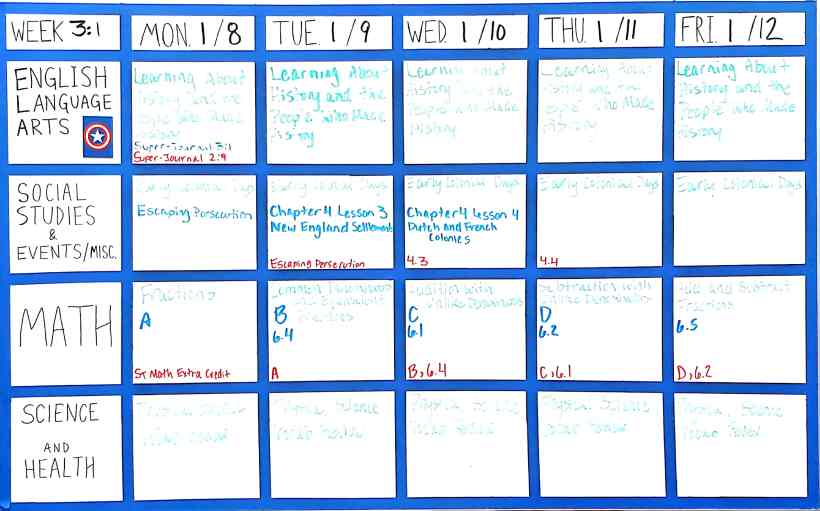 WEEK 3:1
MON. 1/8
TUE. 1/9
WED. 1/10
THU. 1/11
FRI. 1/12
ENGLISH
LANGUAGE
ARTS
Learning About
History and the
People who Made
History
Super-Journal 3:1
Super-Journal 2:9
Learning About
History and the
People who Made
History
Learning About
History and the
People who Made
History
Learning About
History and the
People who Made
History
Learning About
History and the
People who Made
History
SOCIAL
STUDIES
&
EVENTS/MISC.
Early Colonial Days
Escaping Persecution
Early Colonial Days
Chapter 4 Lesson 3
New England Settlements
Escaping Persecution
Early Colonial Days
Chapter 4 Lesson 4
Dutch and French
Colonies
4.3
Early Colonial Days
4.4
Early Colonial Days
MATH
Fractions
A
5T Math Extra Credit
Common Denominators
Equivalent
B
6.4
A
Addition with
Unlike Denominators
C
6.1
B, 6.4
Subtraction with
Unlike Denominators
D
6.2
C, 6.1
Add and Subtract
Fractions
6.5
D, 6.2
SCIENCE
AND
HEALTH
Physical Science
Physical Science
Physical Science
Physical Science
Physical Science